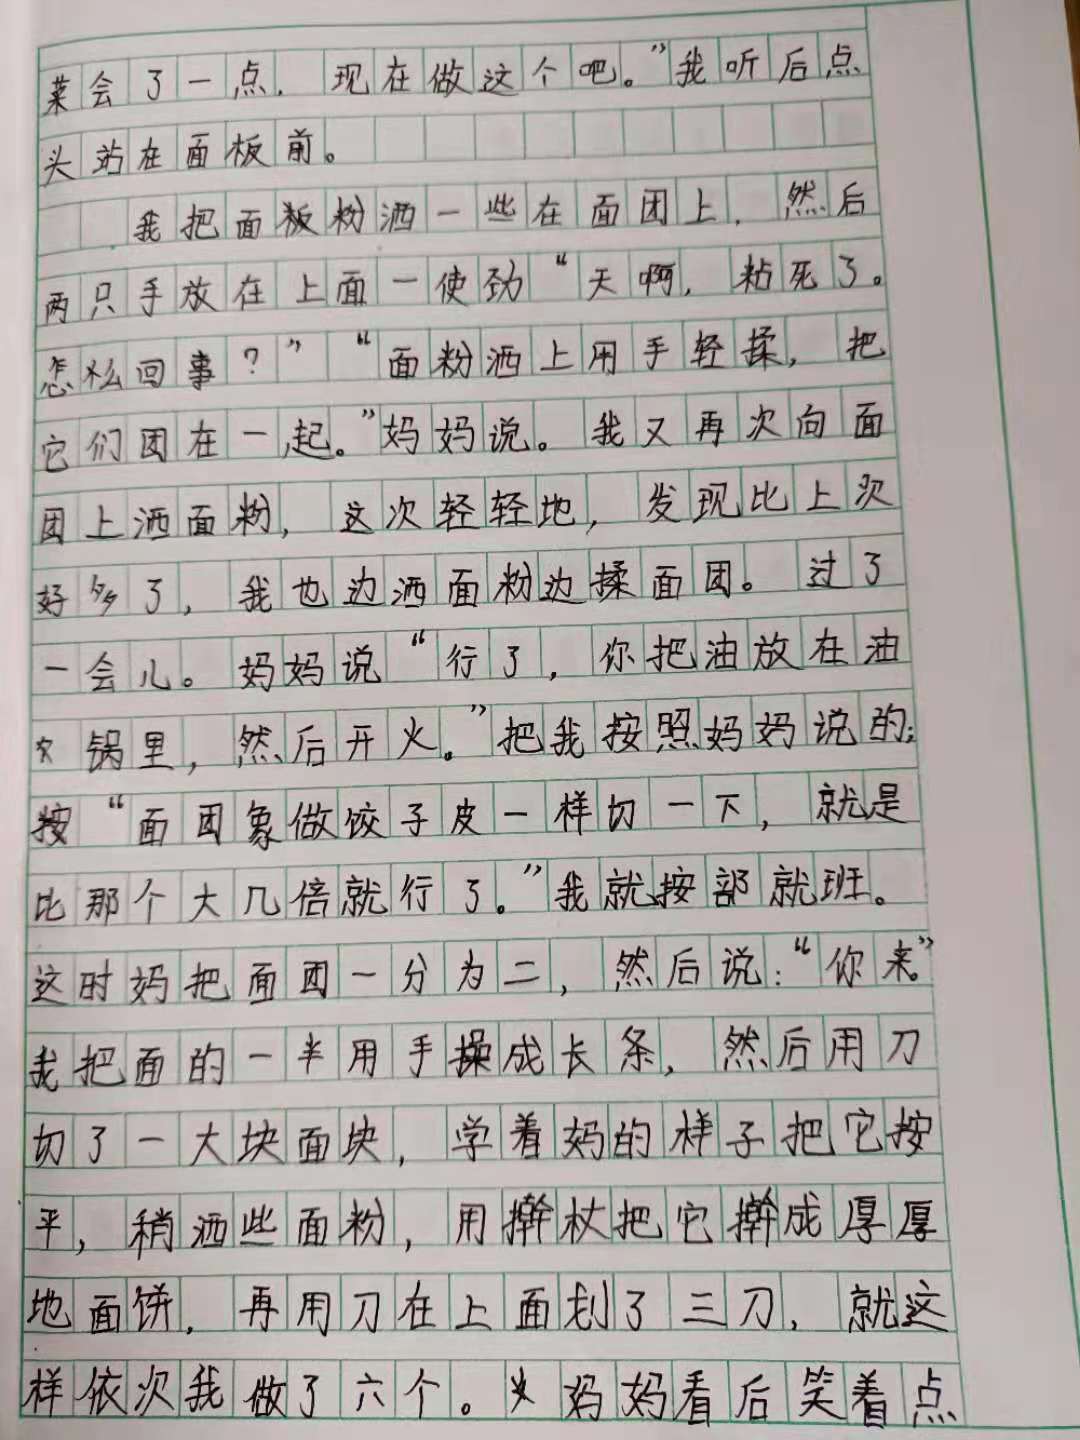 菜会了一点，现在做这个吧。”我听后点
头站在面板前。
我把面板粉洒一些在面团上，然后
两只手放在上面一使劲“天啊，粘死了。
怎么回事？”“面粉洒上用手轻揉，把
它们团在一起。”妈妈说。我又再次向面
团上洒面粉，这次轻轻地，发现比上次
好多了，我也边洒面粉边揉面团。过了
一会儿。妈妈说“行了，你把油放在油
锅里，然后开火。”把我按照妈妈说的；
按“面团象做饺子皮一样切一下，就是
比那个大几倍就行了。”我就按部就班。
这时妈把面团一分为二，然后说：“你来”
我把面的一半用手操成长条，然后用刀
切了一大块面块，学着妈的样子把它按
平，稍洒些面粉，用擀杖把它擀成厚厚
地面饼，再用刀在上面划了三刀，就这
样依次我做了六个。妈妈看后笑着点